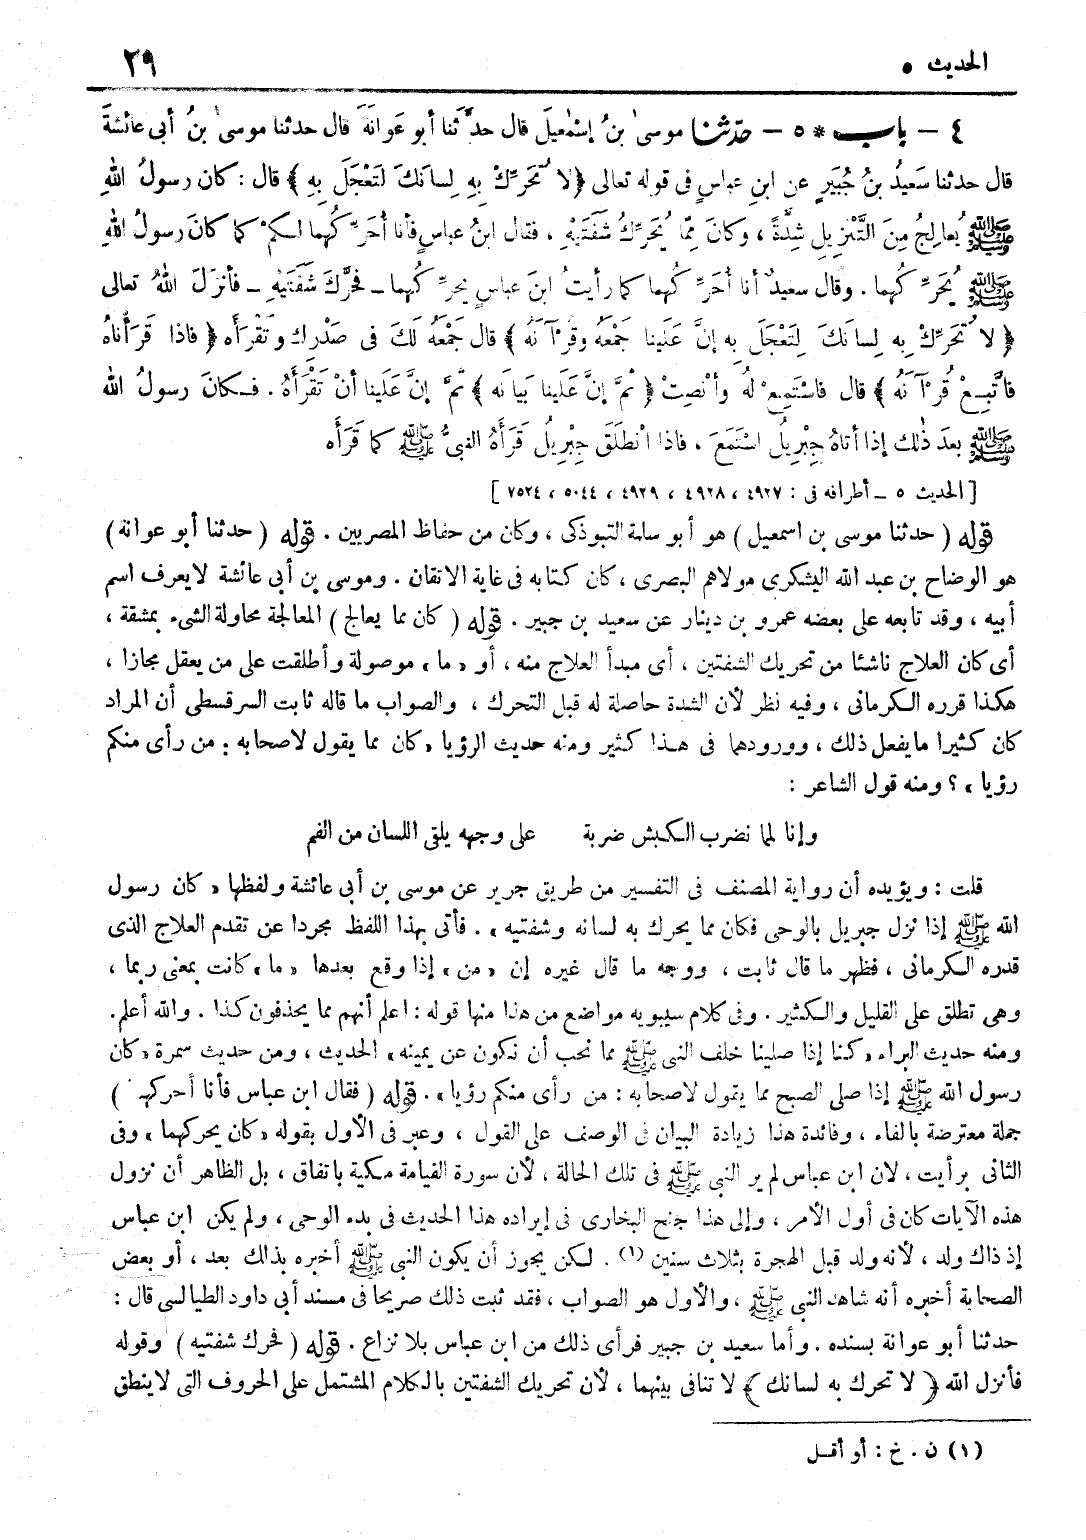 الحديث ٥
٢٩
٤ - باب * ٥ - حدّثنا موسىٰ بنُ إسْمٰعيلَ قال حدَّثنا أبو عَوانةَ قال حدثنا موسىٰ بنُ أبى عائشةَ
قال حدثنا سَعيدُ بنُ جُبَيرٍ عن ابنِ عباسٍ فى قوله تعالى ﴿ لا تُحَرِّكْ بِهِ لِسانَكَ لتَعْجَلَ بِهِ ﴾ قال : كان رسولُ اللهِ
ﷺ يُعالِجُ مِنَ التَّنْزِيلِ شِدَّةً ، وكانَ مِمّا يُحَرِّكُ شَفَتَيْهِ ، فقال ابنُ عباسٍ فأنا أحَرِّكُهما لـكمْ كما كانَ رسولُ اللهِ
ﷺ يُحَرِّكُهما . وقال سعيدٌ أنا أحَرِّكُهما كما رأيتُ ابنَ عباسٍ يحرِّكُهما ـ فحرَّكَ شَفَتَيْهِ ـ فأنزَلَ اللهُ تعالى
﴿ لا تُحَرِّكْ بِهِ لِسانَكَ لِتَعْجَلَ بِهِ إنَّ عَلَينا جَمْعَهُ وقُرْآنَهُ ﴾ قال جَمْعَهُ لكَ فى صَدْرِك وتَقْرأَه ﴿ فاذا قَرَأْناهُ
فاتَّبِعْ قُرْآنَهُ ﴾ قال فاسْتَمِعْ لهُ وأنْصِتْ ﴿ ثمَّ إنَّ عَلَينا بَيانَه ﴾ ثمَّ إنَّ عَلَينا أنْ تَقْرَأَهُ . فـكانَ رسولُ الله
ﷺ بعدَ ذٰلك إذا أتاهُ جِبْرِيلُ اسْتَمَعَ ، فاذا انْطَلَقَ جِبْرِيلُ قَرَأَهُ النبىُّ ﷺ كما قَرَأَه
[ الحديث ٥ ـ أطرافه فى : ٤٩٢٧ ، ٤٩٢٨ ، ٤٩٢٩ ، ٥٠٤٤ ، ٧٥٢٤ ]
قوله ( حدثنا موسى بن اسمعيل ) هو أبو سلمة التبوذكى ، وكان من حفاظ المصريين . قوله ( حدثنا أبو عوانة )
هو الوضاح بن عبد الله اليشكرى مولاهم البصرى ، كان كتابه فى غاية الاتقان . وموسى بن أبى عائشة لا يعرف اسم
أبيه ، وقد تابعه على بعضه عمرو بن دينار عن سعيد بن جبير . قوله ( كان مما يعالج ) المعالجة محاولة الشىء بمشقة ،
أى كان العلاج ناشئا من تحريك الشفتين ، أى مبدأ العلاج منه ، أو « ما » موصولة وأطلقت على من يعقل مجازا ،
هكذا قرره الكرمانى ، وفيه نظر لأن الشدة حاصلة له قبل التحرك ، والصواب ما قاله ثابت السرقسطى أن المراد
كان كثيرا ما يفعل ذلك ، وورودهما فى هذا كثير ومنه حديث الرؤيا « كان مما يقول لاصحابه : من رأى منكم
رؤيا » ؟ ومنه قول الشاعر :
وإنا لمما نضرب الكبش ضربة على وجهه يلقى اللسان من الفم
قلت : ويؤيده أن رواية المصنف فى التفسير من طريق جرير عن موسى بن أبى عائشة ولفظها « كان رسول
الله ﷺ إذا نزل جبريل بالوحى فكان مما يحرك به لسانه وشفتيه » . فأتى بهذا اللفظ مجردا عن تقدم العلاج الذى
قدره الكرمانى ، فظهر ما قال ثابت ، ووجه ما قال غيره إن « من » إذا وقع بعدها « ما » كانت بمعنى ربما ،
وهى تطلق على القليل والكثير . وفى كلام سيبويه مواضع من هذا منها قوله : اعلم أنهم مما يحذفون كذا . والله أعلم .
ومنه حديث البراء « كنا إذا صلينا خلف النبى ﷺ مما نحب أن نكون عن يمينه » الحديث ، ومن حديث سمرة « كان
رسول الله ﷺ إذا صلى الصبح مما يقول لاصحابه : من رأى منكم رؤيا » . قوله ( فقال ابن عباس فأنا أحركهما )
جملة معترضة بالفاء ، وفائدة هذا زيادة البيان فى الوصف على القول ، وعبر فى الأول بقوله « كان يحركهما » وفى
الثانى برأيت ، لان ابن عباس لم ير النبى ﷺ فى تلك الحالة ، لأن سورة القيامة مكية باتفاق ، بل الظاهر أن نزول
هذه الآيات كان فى أول الأمر ، وإلى هذا جنح البخارى فى إيراده هذا الحديث فى بدء الوحى ، ولم يكن ابن عباس
إذ ذاك ولد ، لأنه ولد قبل الهجرة بثلاث سنين (١) . لكن يجوز أن يكون النبى ﷺ أخبره بذلك بعد ، أو بعض
الصحابة أخبره أنه شاهد النبى ﷺ ، والأول هو الصواب ، فقد ثبت ذلك صريحا فى مسند أبى داود الطيالسى قال :
حدثنا أبو عوانة بسنده . وأما سعيد بن جبير فرأى ذلك من ابن عباس بلا نزاع . قوله ( فحرك شفتيه ) وقوله
فأنزل الله ﴿ لا تحرك به لسانك ﴾ لا تنافى بينهما ، لأن تحريك الشفتين بالكلام المشتمل على الحروف التى لا ينطق
(١) ن . خ : أو أقل